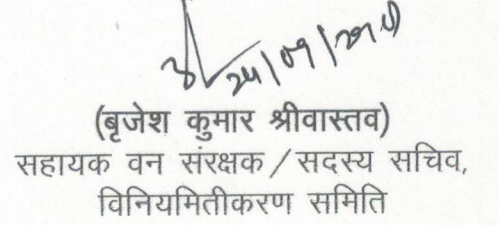 (बृजेश कुमार श्रीवास्तव)
सहायक वन संरक्षक / सदस्य सचिव,
विनियमितीकरण समिति